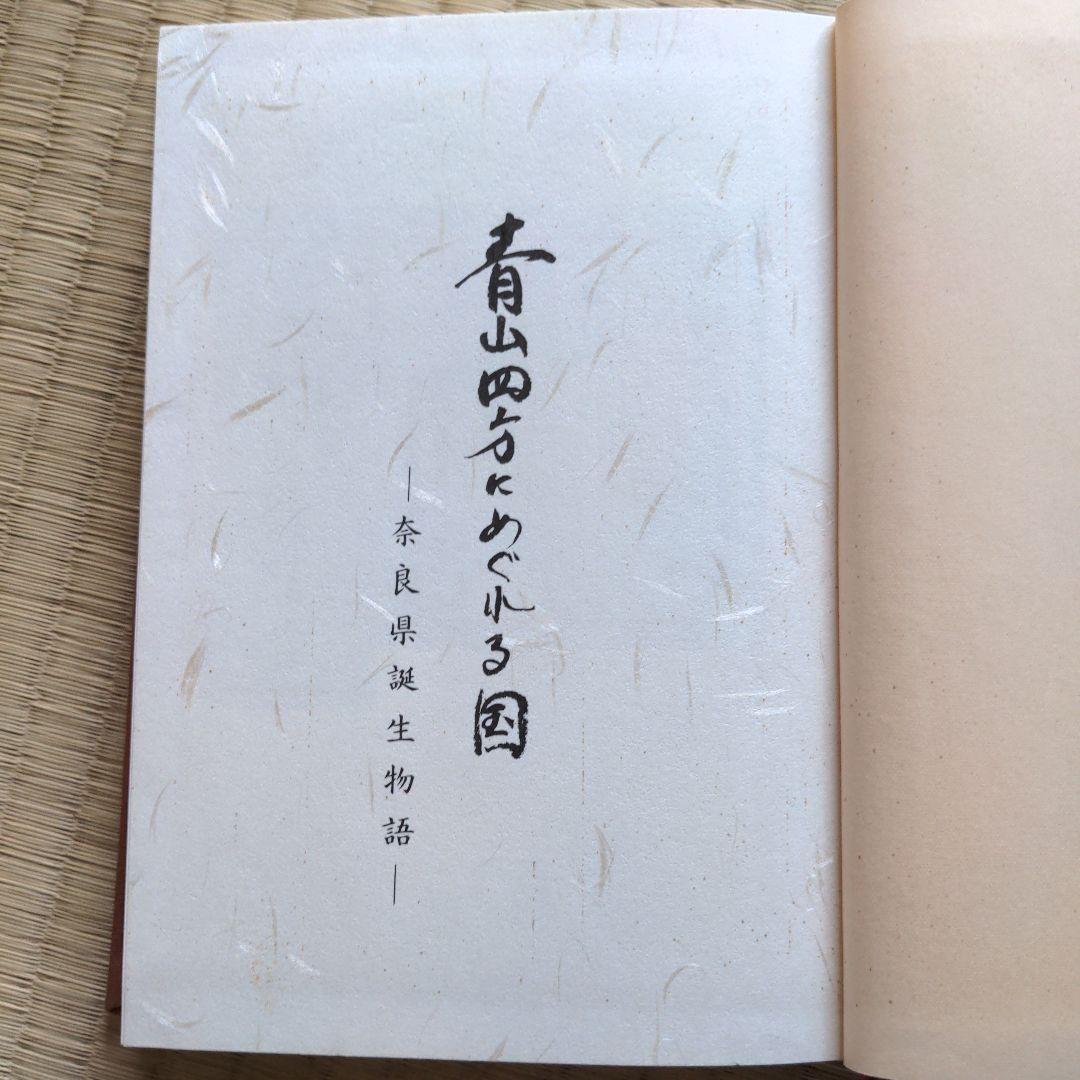 青山四方にめぐれる国
―奈良県誕生物語―